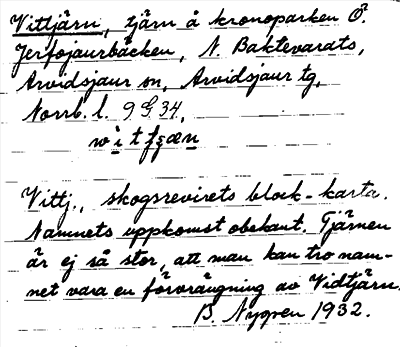 Vittjärn, tjärn å kronoparken Ö.
Jerfojaurbäcken, N. Baktevarats,
Arvidsjaur sn, Arvidsjaur tg,
Norrb. l. 9 G. 34.
Vittj., skogsrevirets block-karta.
Namnets uppkomst obekant. Tjärnen
är ej så stor, att man kan tro nam-
net vara en förvrängning av Vidtjärn.
B. Nygren 1932.